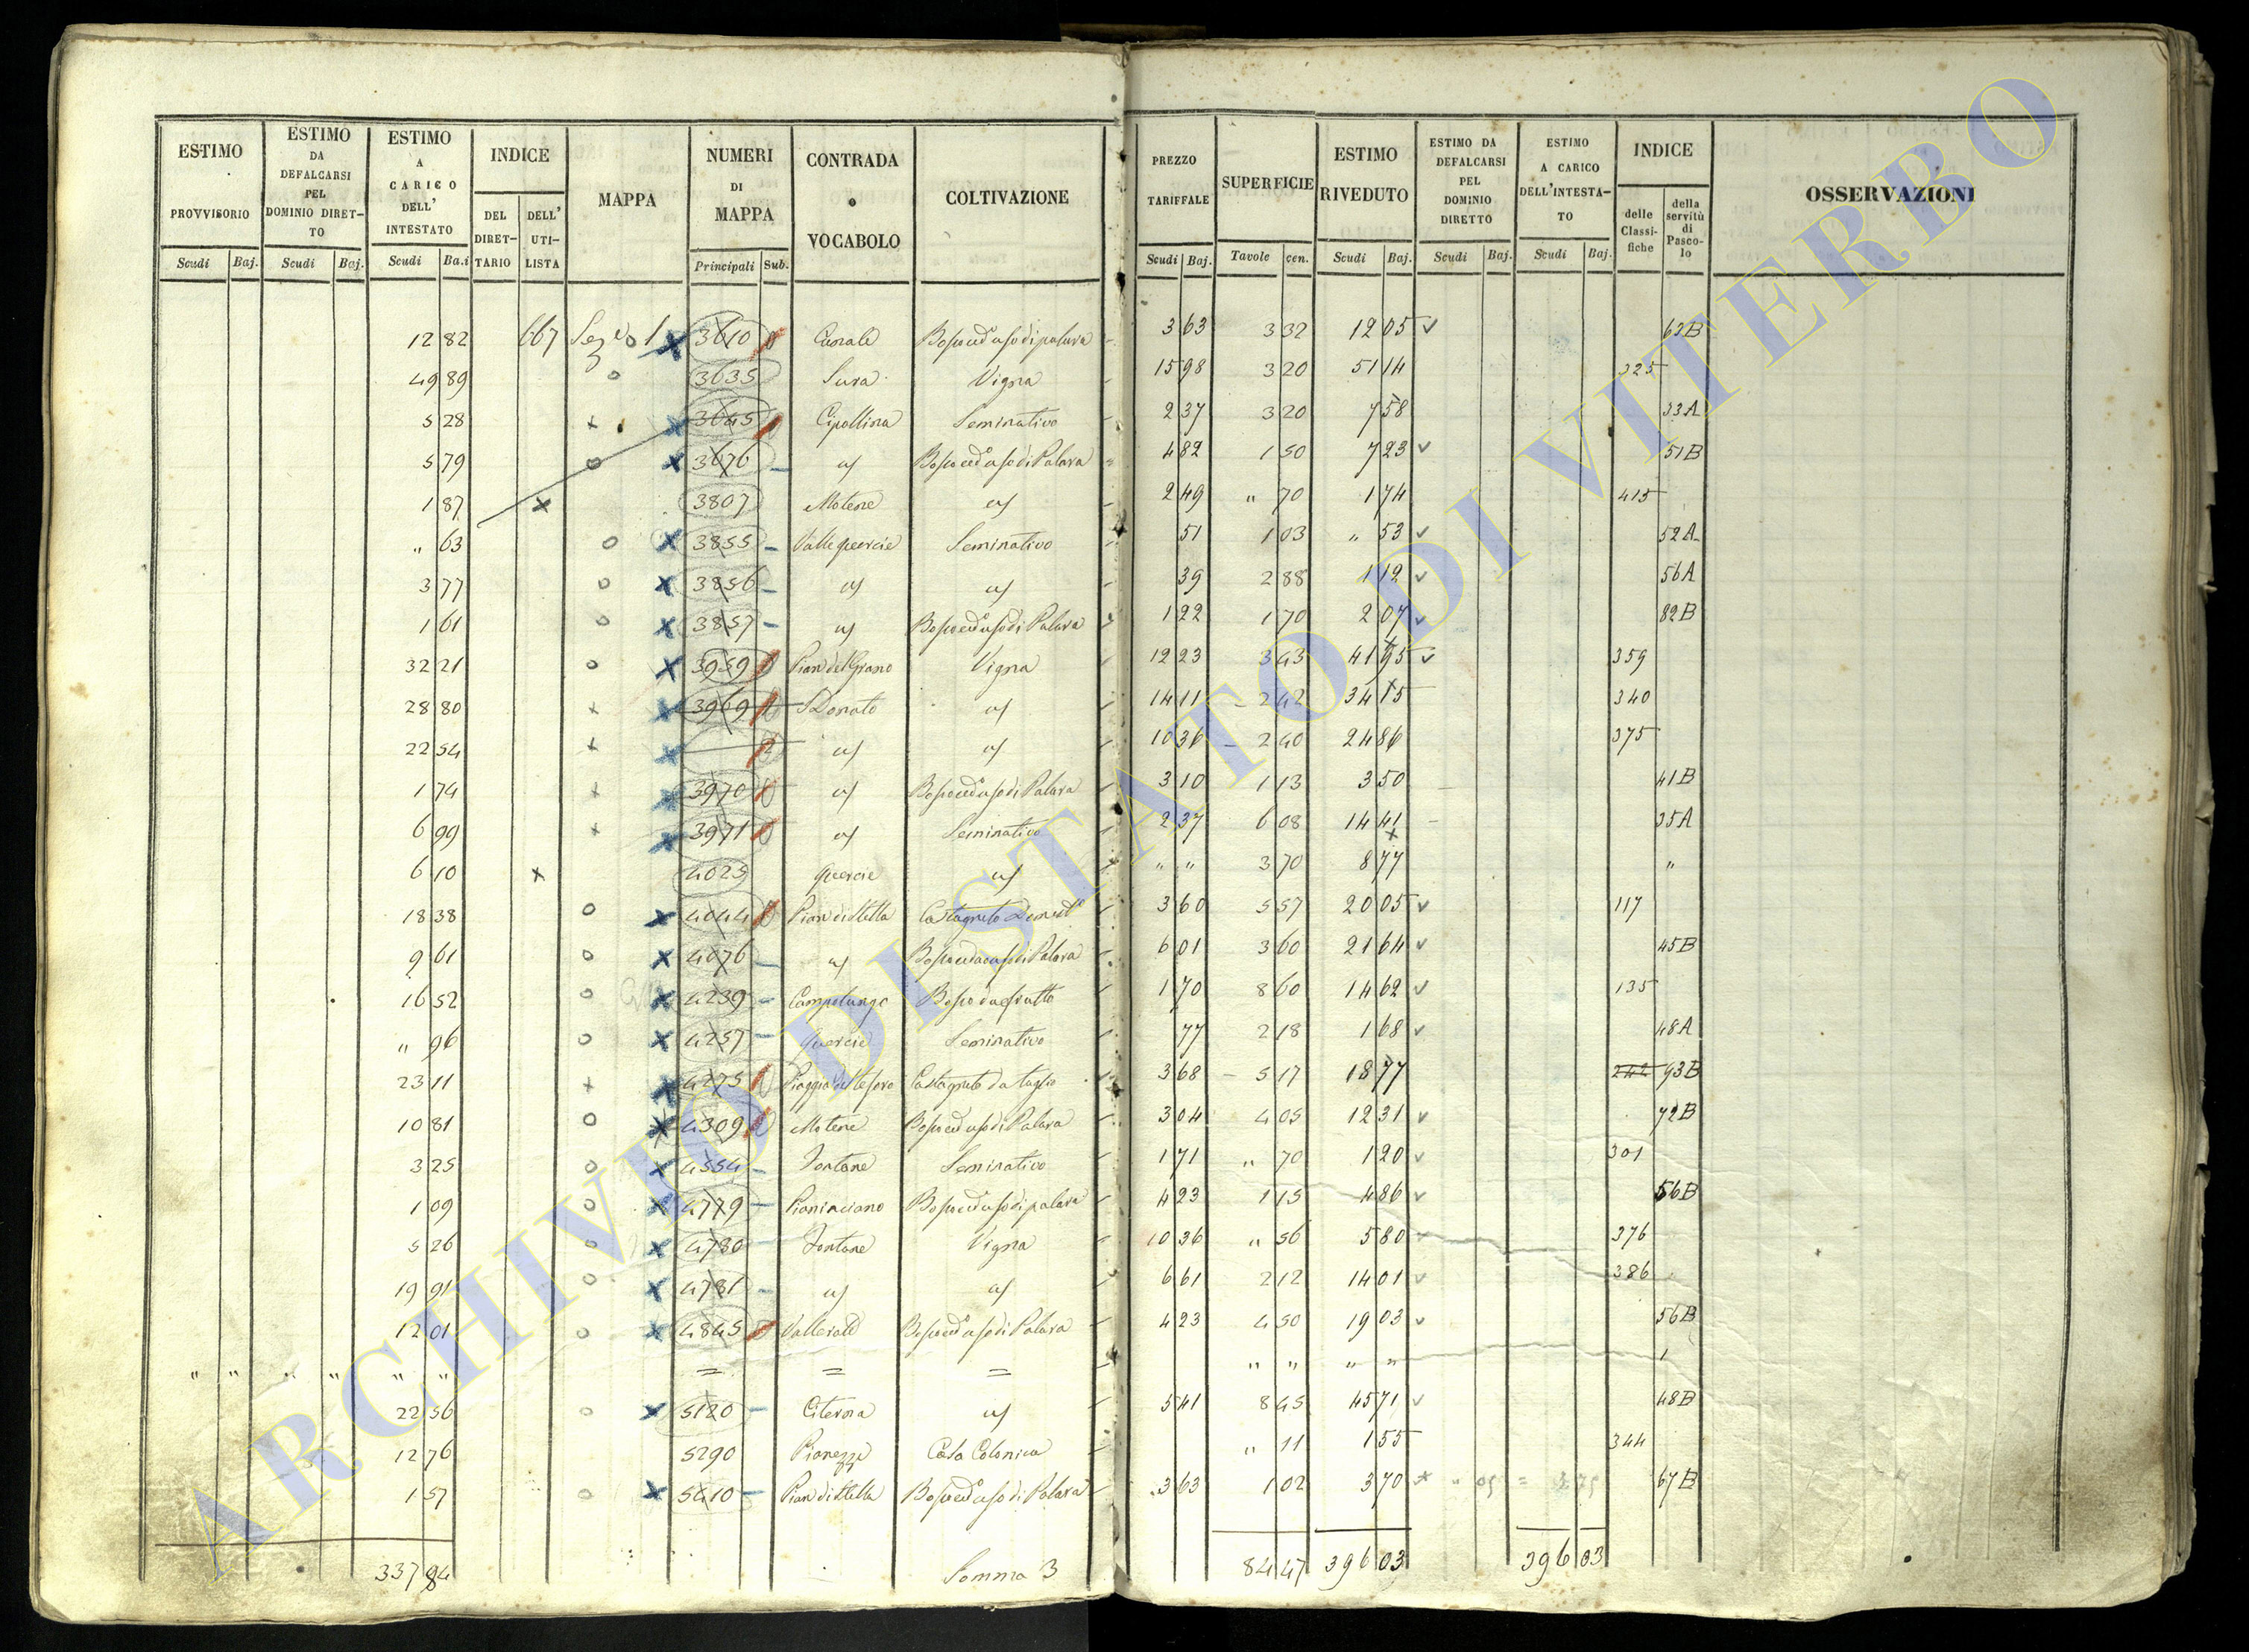 ESTIMO PROVVISORIO Scudi Baj.
ESTIMO DA DEFALCARSI PEL DOMINIO DIRET-TO Scudi Baj.
ESTIMO A CARICO DELL' INTESTATO Scudi Ba.i
INDICE DEL DIRET-TARIO DELL' UTI-LISTA
MAPPA
NUMERI DI MAPPA Principali Sub.
CONTRADA o VOCABOLO
COLTIVAZIONE
PREZZO TARIFFALE Scudi Baj.
SUPERFICIE Tavole cen.
ESTIMO RIVEDUTO Scudi Baj.
ESTIMO DA DEFALCARSI PEL DOMINIO DIRETTO Scudi Baj.
ESTIMO A CARICO DELL'INTESTA-TO Scudi Baj.
INDICE delle Classi-fiche della servitù di Pasco-lo
OSSERVAZIONI
12 82 667 3610 Canale 3 63 3 32 12 05 62B
49 89 3635 Vigna 15 98 3 20 51 14 325
5 28 3645 Cipollina Seminativo 2 37 3 20 7 58 33A
5 79 3676 4 82 1 50 7 23 51B
1 87 3807 Motene 2 49 " 70 1 74 415
" 63 3855 Valle quercie Seminativo 51 1 03 " 53 52A
3 77 3856 39 2 88 1 12 56A
1 61 3857 1 22 1 70 2 07 82B
32 21 3959 Pian del Grano Vigna 12 23 3 43 41 95 359
28 80 3969 1 S Donato 14 11 2 42 34 15 340
22 54 2 10 36 2 40 24 86 375
1 74 3970 3 10 1 13 3 50 41B
6 99 3971 Seminativo 2 37 6 08 14 41 35A
6 10 4025 Quercie " " 3 70 8 77 "
18 38 4044 Pian di Stella Castagneto 3 60 5 57 20 05 117
9 61 4076 6 01 3 60 21 64 45B
16 52 4239 Campolungo Bosco da frutto 1 70 8 60 14 62 135
" 96 4257 Quercie Seminativo 77 2 18 1 68 48A
23 11 4275 Castagneto da taglio 3 68 5 17 18 77 242 93B
10 81 4309 Motene 3 04 4 05 12 31 72B
3 25 4554 Fontane Seminativo 1 71 " 70 1 20 301
1 09 4779 Pianinciano 4 23 1 15 4 86 56B
5 26 4780 Fontane Vigna 10 36 " 56 5 80 376
19 91 4781 6 61 2 12 14 01 386
12 01 4845 Vallerato 4 23 4 50 19 03 56B
" " " " " " = = = " " " " 1
22 56 5120 Citerna 5 41 8 45 45 71 48B
12 76 5290 Pianezze Casa Colonica " 11 1 55 344
1 57 5410 Pian di Stella 3 63 1 02 3 70 67B
337 84 Somma 3 84 47 396 03 396 03
ARCHIVIO DI STATO DI VITERBO